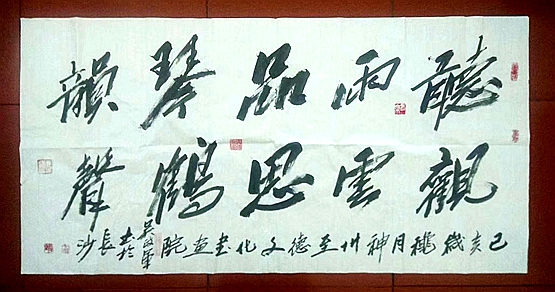 聽雨品琴韻
觀雲思鶴聲
己亥歲穐月神州至德文化書画院
書於
長沙